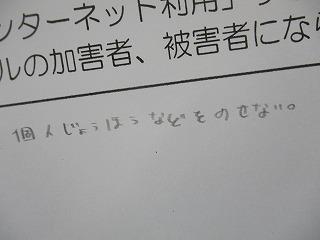 ンターネット利用」
ルの加害者、被害者にな
個人じょうほうなどをのせない。